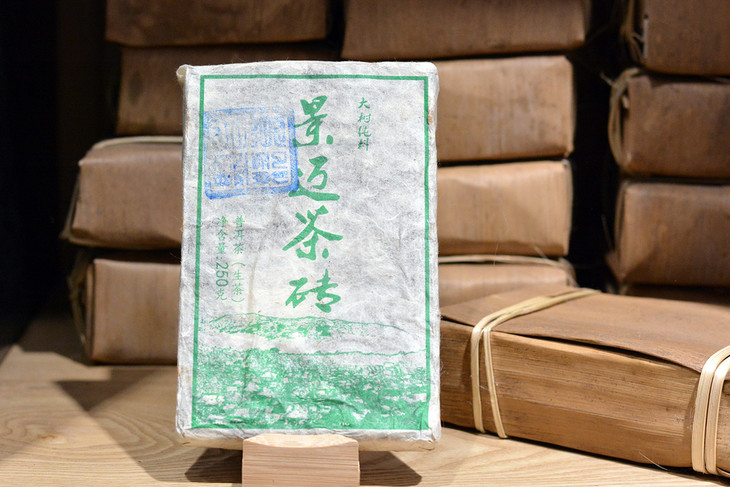 大树纯料
景迈茶砖
普洱茶（生茶）
净含量:250克